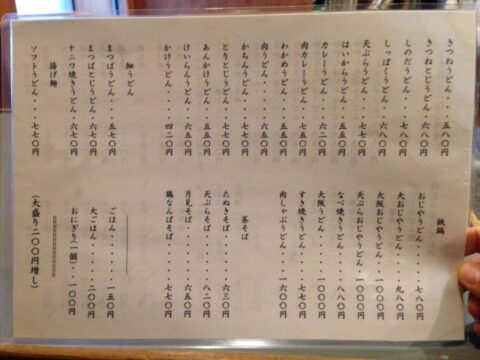 きつねうどん・・・・五八〇円
きつねとじうどん・・六八〇円
しのだうどん・・・・七八〇円
しっぽくうどん・・・六八〇円
天ぷらうどん・・・・七七〇円
はいからうどん・・・五五〇円
カレーうどん・・・・六二〇円
肉カレーうどん・・・七五〇円
わかめうどん・・・・五五〇円
肉うどん・・・・・・六五〇円
かちんうどん・・・・七七〇円
とりとじうどん・・・七七〇円
あんかけうどん・・・五五〇円
けいらんうどん・・・五五〇円
かけうどん・・・・・四二〇円
細うどん
まつばうどん・・・・五七〇円
まつばとじうどん・・六七〇円
ナニワ焼きうどん・・六七〇円
揚げ麺
ソフトうどん・・・・七七〇円
鉄鍋
おじやうどん・・・・七八〇円
大おじやうどん・・・九八〇円
大阪おじやうどん・一〇〇〇円
天ぷらおじやうどん一〇〇〇円
なべ焼きうどん・・・八八〇円
大阪うどん・・・・一〇〇〇円
すき焼きうどん・・・七七〇円
肉しゃぶうどん・・一六〇〇円
茶そば
たぬきそば・・・・・六三〇円
天ぷらそば・・・・・八二〇円
月見そば・・・・・・六五〇円
鶏なんばそば・・・・七七〇円
ごはん・・・・・・・一五〇円
大ごはん・・・・・・二〇〇円
おにぎり(一個)・・一〇〇円
(大盛り二〇〇円増し)